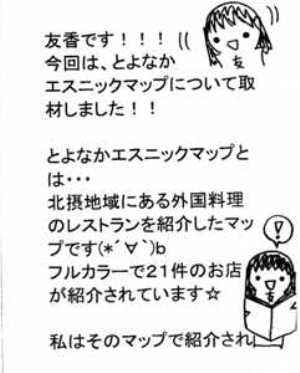 友香です！！！
今回は、とよなか
エスニックマップについて取
材しました！！
とよなかエスニックマップと
は・・・
北摂地域にある外国料理
のレストランを紹介したマッ
プです(*´∀｀)b
フルカラーで21件のお店
が紹介されています☆
私はそのマップで紹介され
友